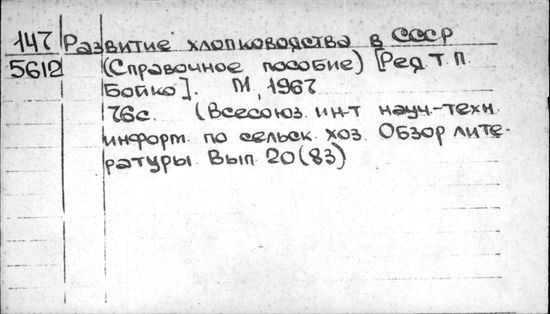 147 Развитие хлопководства в СССР
5612 (Справочное пособие) [Ред. Т. П.
Бойко]. М, 1967
76с. (Всесоюз. ин-т науч.-техн.
информ. по сельск. хоз. Обзор лите-
ратуры. Вып. 20(83)